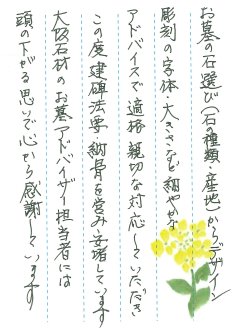 お墓の石選び(石の種類・産地)からデザイン
彫刻の字体・大きさなど細やかな
アドバイスで適格、親切な対応していただき
この度建碑法要、納骨を営み安堵しています
大阪石材のお墓アドバイザー担当者には
頭の下がる思いで心から感謝しています